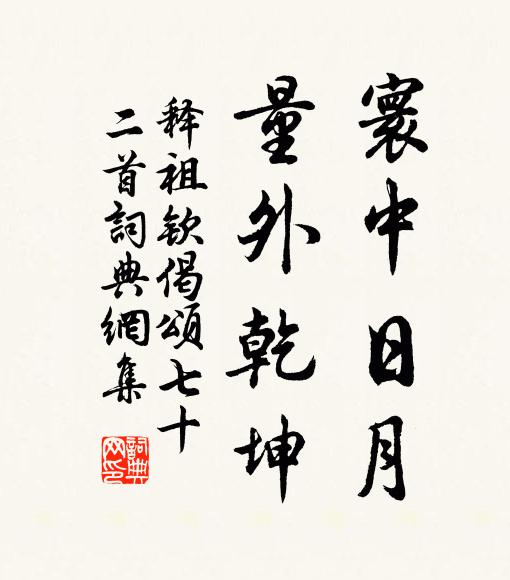 寰中日月
量外乾坤
释祖钦偈頌七十
二首詞典網集
詞典网印